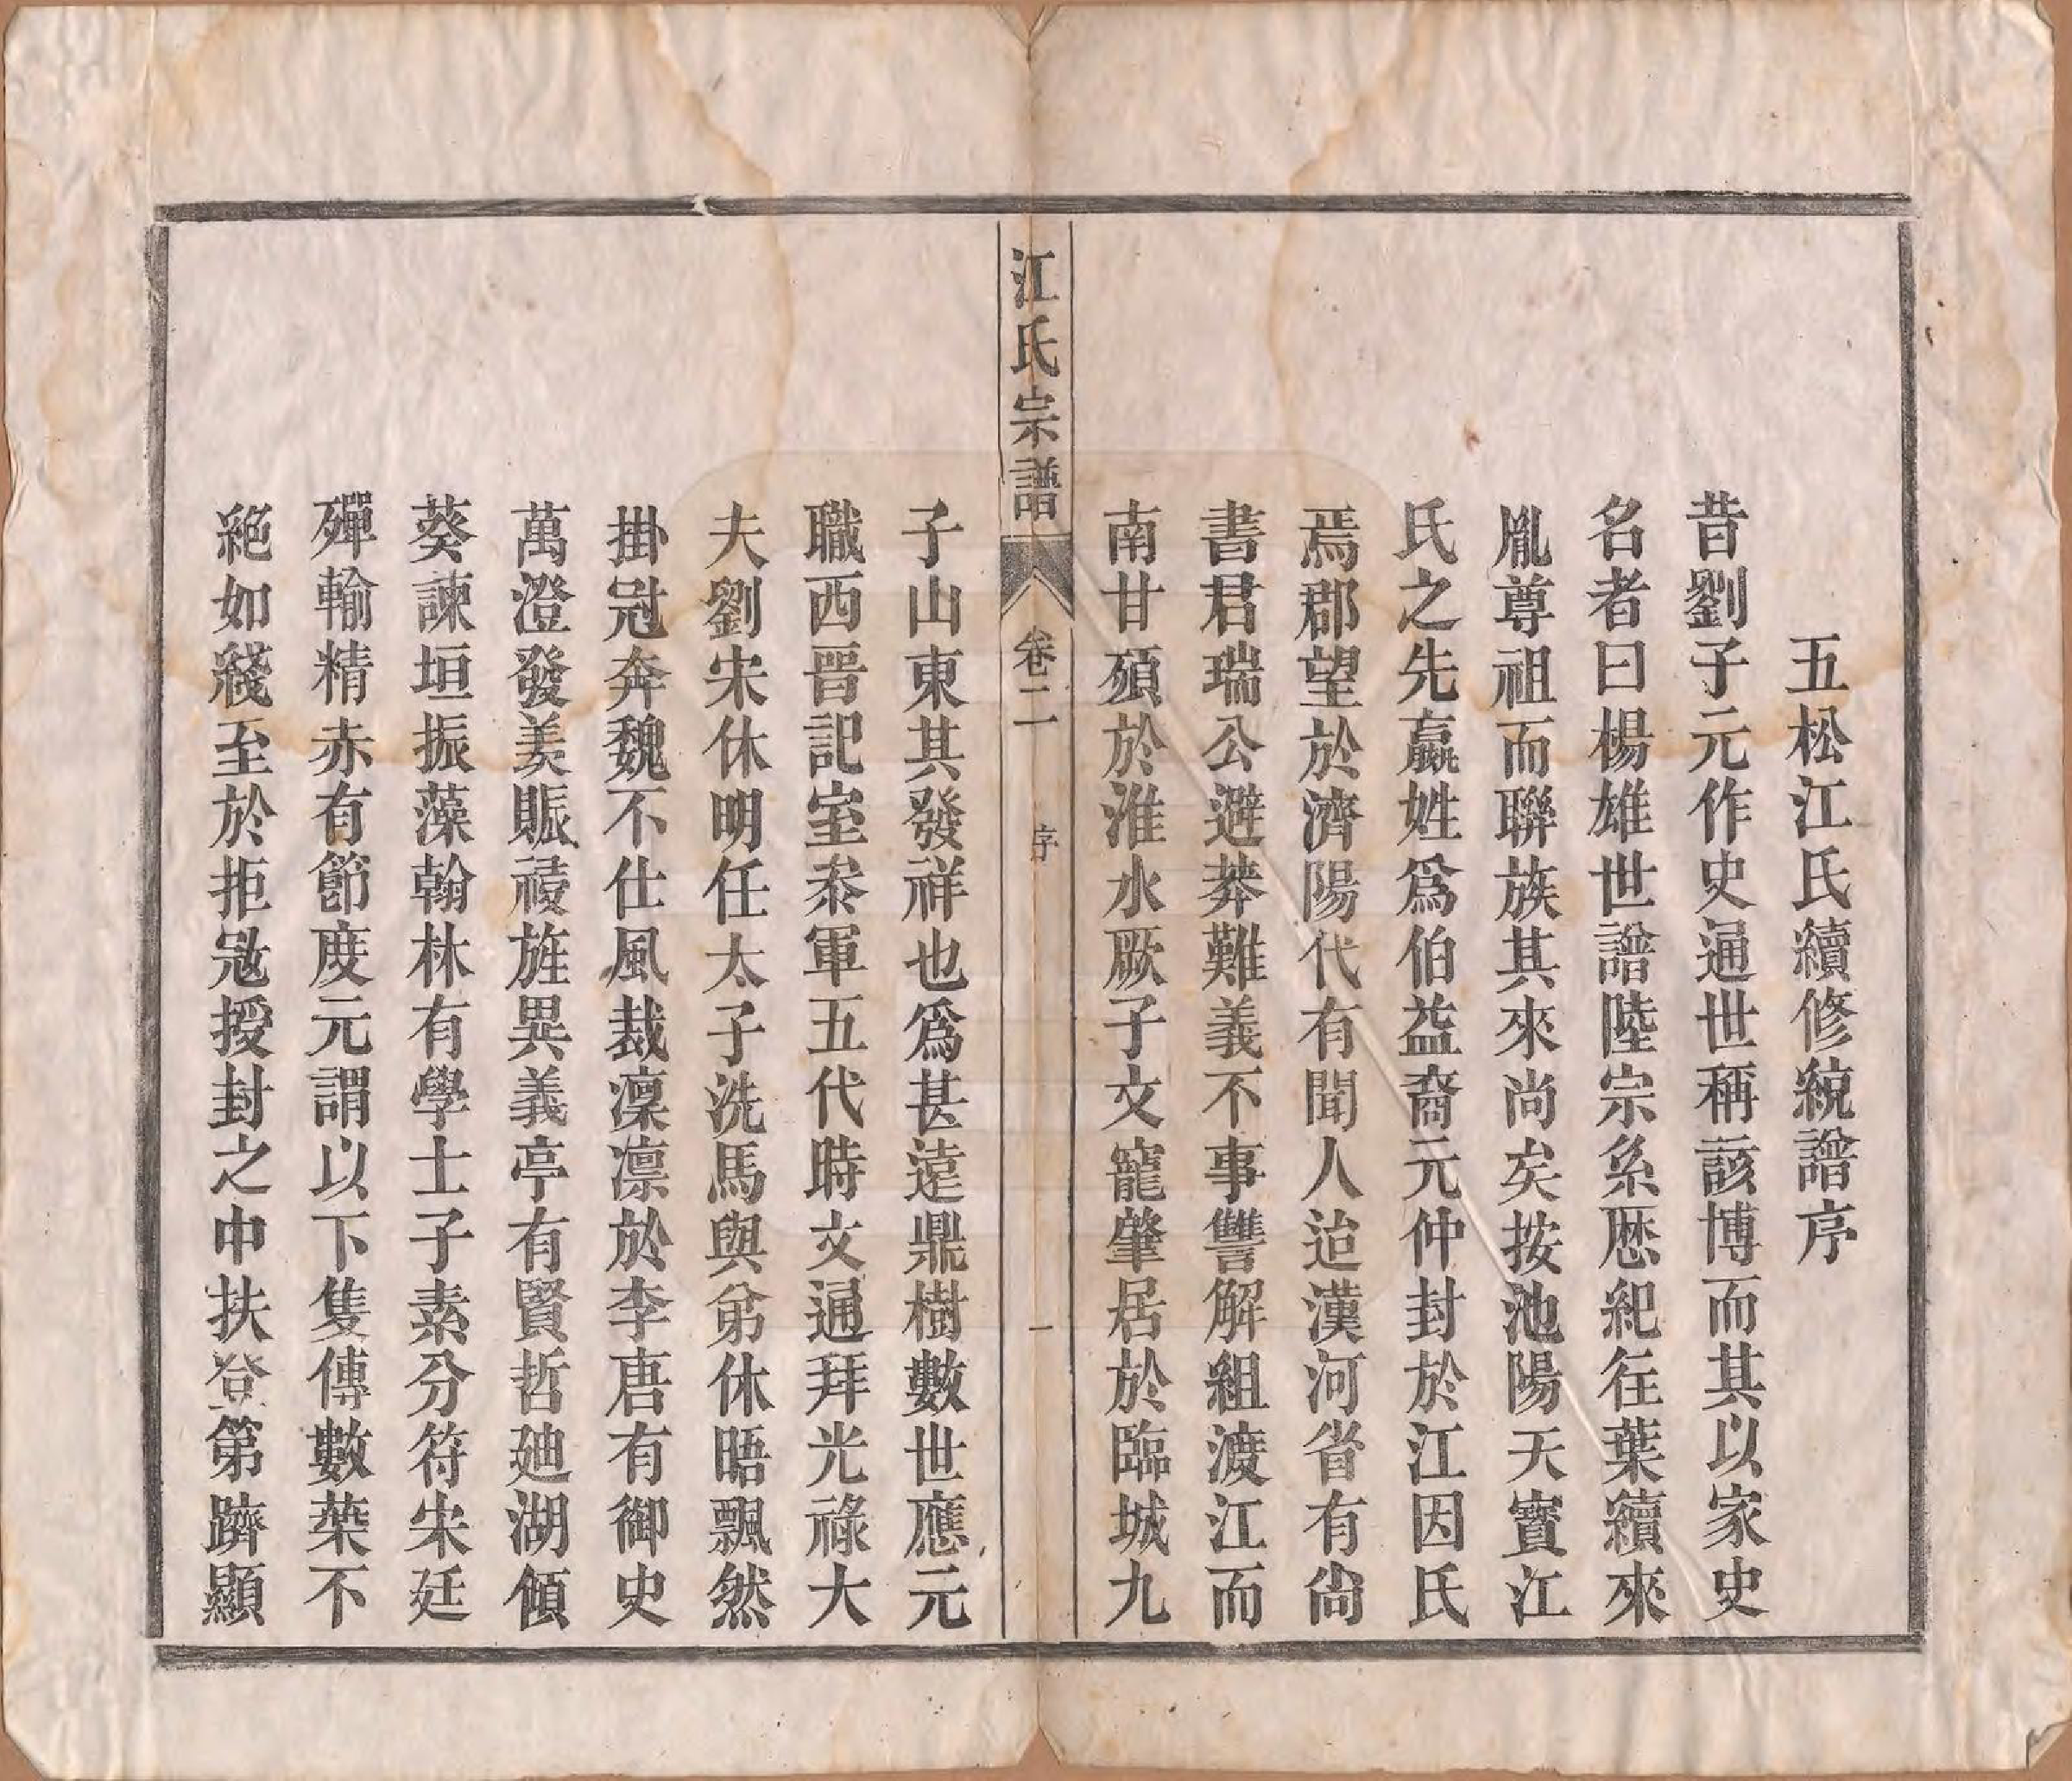 五松江氏續修統譜序
昔劉子元作史通世稱該博而其以家史
名者曰楊雄世譜陸宗系厯紀往葉續來
胤尊祖而聯族其來尚矣按池陽天寳江
氏之先嬴姓爲伯益裔元仲封於江因氏
焉郡望於濟陽代有聞人迨漢河省有尙
書君瑞公避莽難義不事讐解組渡江而
南甘殞於淮水厥子文寵肇居於臨城九
江氏宗譜
卷二
序
一
子山東其發祥也爲甚遠鼎樹數世應元
職西晉記室叅軍五代時文通拜光祿大
夫劉宋休明任太子洗馬與弟休晤飄然
掛冠奔魏不仕風裁凜凛於李唐有御史
萬澄發美賑䘲旌異義亭有賢哲廸湖傾
葵諫垣振藻翰林有學士子素分符宋廷
殫輸精赤有節度元謂以下隻傳數葉不
絕如綫至於拒寇授封之中扶登第躋顯